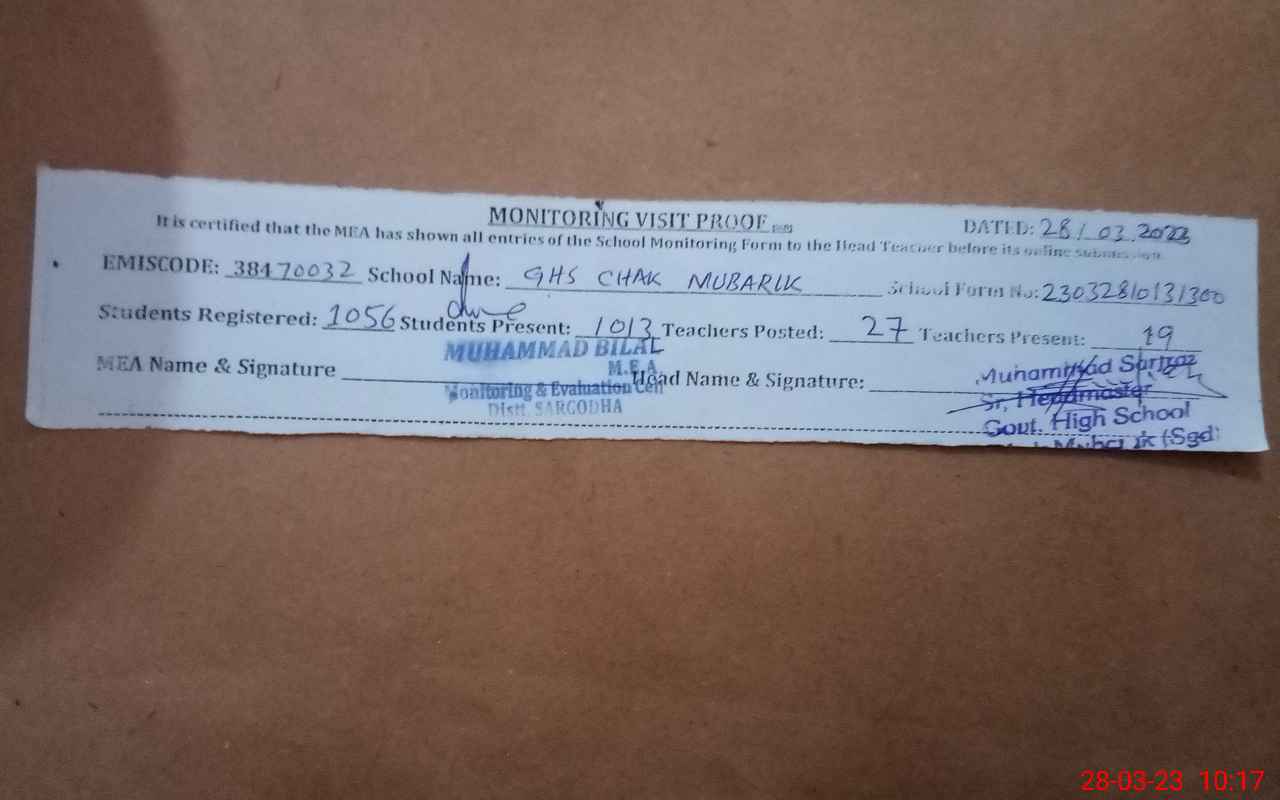 MONITORING VISIT PROOF
DATED: 28/03.2023
It is certified that the MEA has shown all entries of the School Monitoring Form to the Head Teacher before its online submission.
EMISCODE: 38470032 School Name: GHS CHAK MUBARIK School Form No: 23032810131300
Students Registered: 1056 Students Present: 1013 Teachers Posted: 27 Teachers Present: 19
MEA Name & Signature
MUHAMMAD BILAL
M.E.A
Monitoring & Evaluation Cell
Distt. SARGODHA
Head Name & Signature:
Muhammad Sarfraz
Sr. Headmaster
Govt. High School
Mubarik (Sgd)
28-03-23 10:17